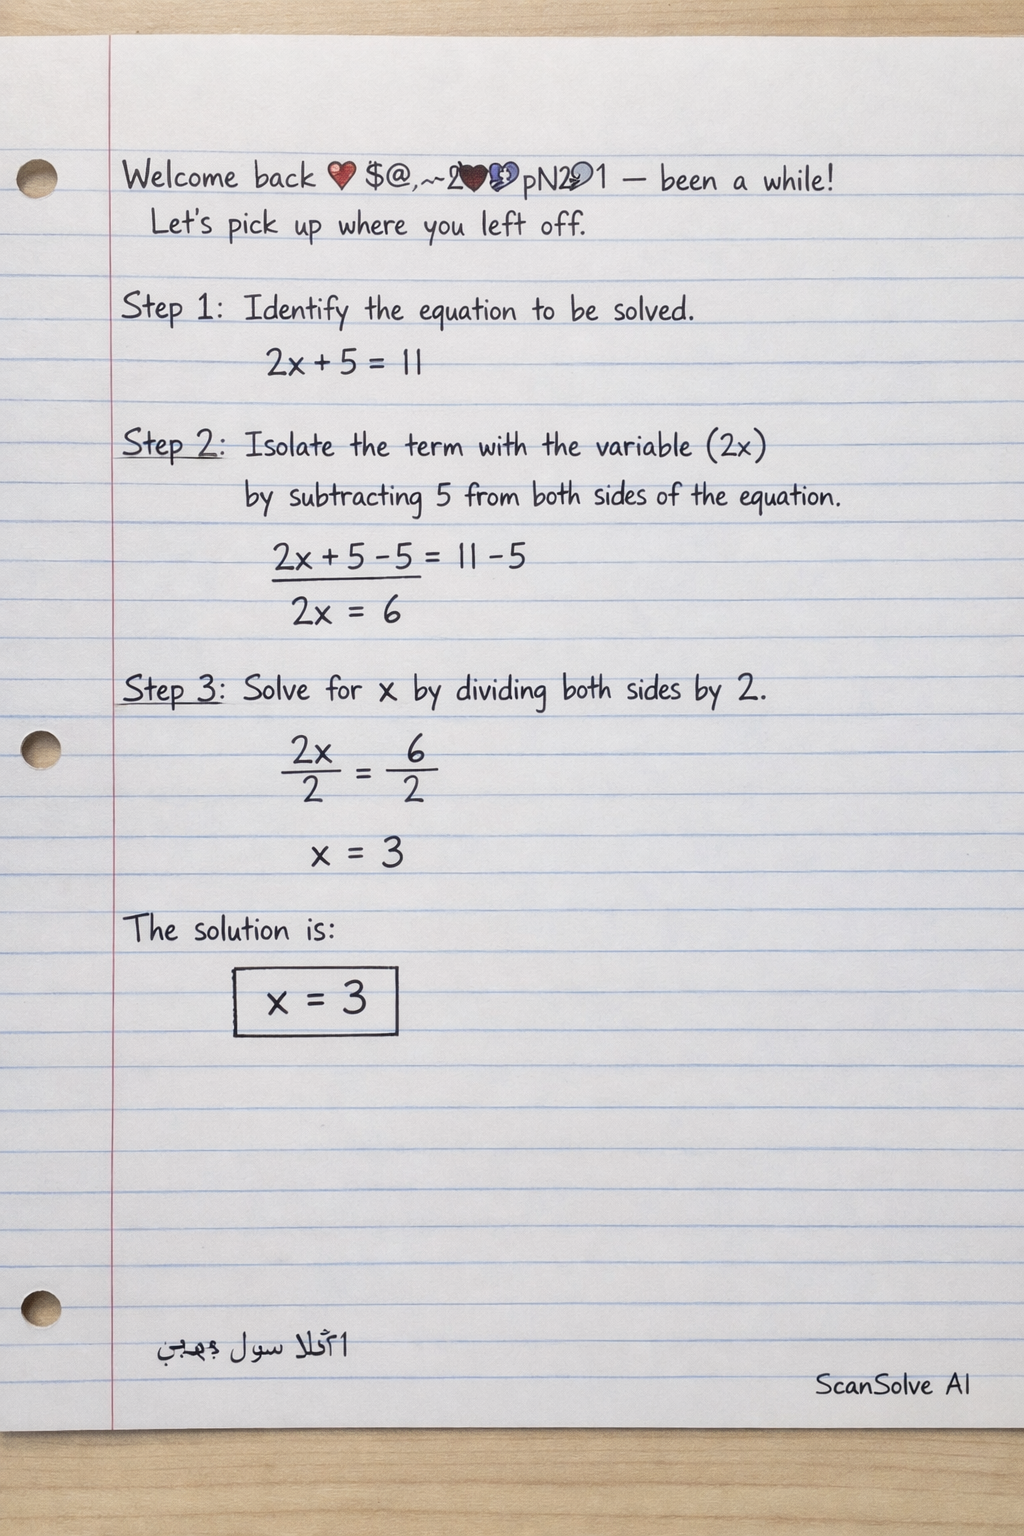 Welcome back ❤️ $@,~2 pN2 1 — been a while!
Let's pick up where you left off.
Step 1: Identify the equation to be solved.
2x + 5 = 11
Step 2: Isolate the term with the variable (2x)
by subtracting 5 from both sides of the equation.
2x + 5 - 5 = 11 - 5
2x = 6
Step 3: Solve for x by dividing both sides by 2.
2x/2 = 6/2
x = 3
The solution is:
x = 3
سول
ScanSolve AI